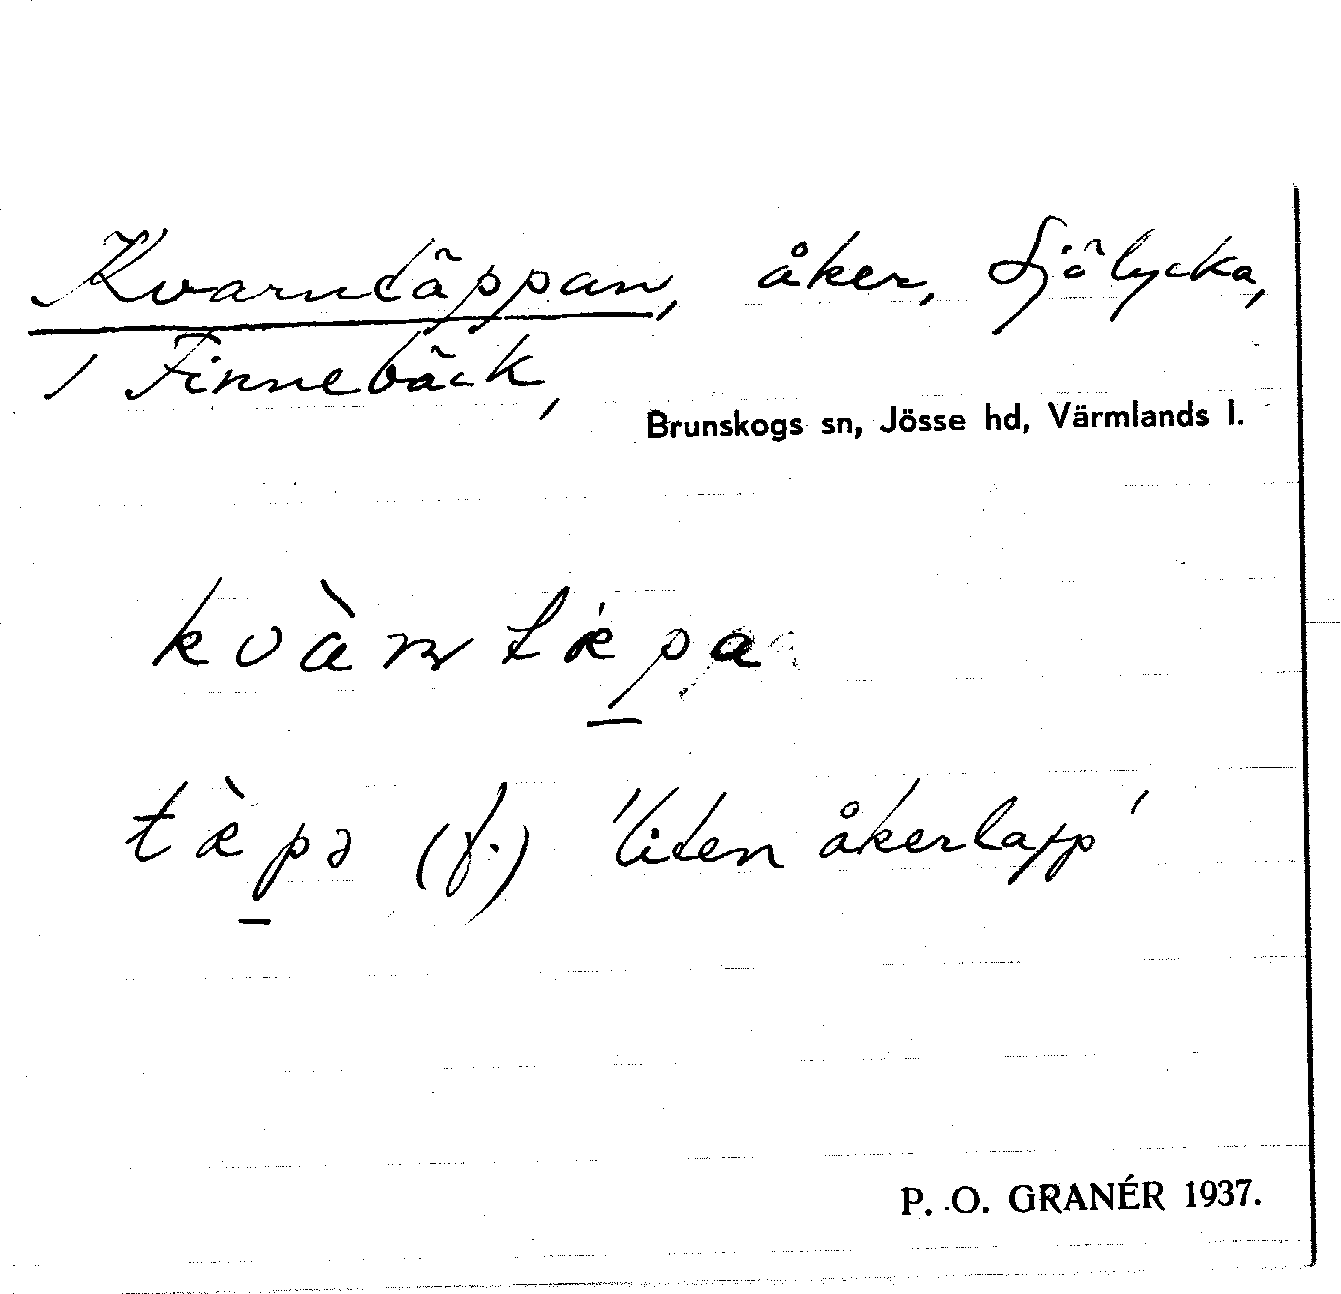 Kvarntäppan, åker, Sjölycka,
/ Finnebäck,
Brunskogs sn, Jösse hd, Värmlands l.
kvàɳtæ̍p̠a
tæ̀p̠ə (f.) 'liten åkerlapp'
P. O. GRANÉR 1937.